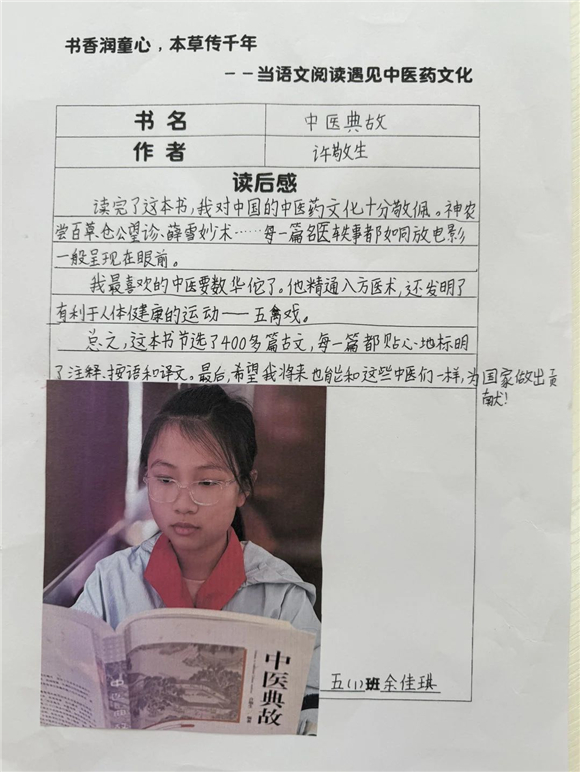 书香润童心，本草传千年
——当语文阅读遇见中医药文化
书名 中医典故
作者 许敬生
读后感
读完了这本书，我对中国的中医药文化十分敬佩。神农
尝百草、仓公望诊、薛雪妙术……每一篇名医轶事都如同放电影
一般呈现在眼前。
我最喜欢的中医要数华佗了。他精通入方医术，还发明了
有利于人体健康的运动——五禽戏。
总之，这本书节选了400多篇古文，每一篇都贴心地标明
了注释、按语和译文。最后，希望我将来也能和这些中医们一样，为国家做出贡
献！
中医典故
五(1)班余佳琪